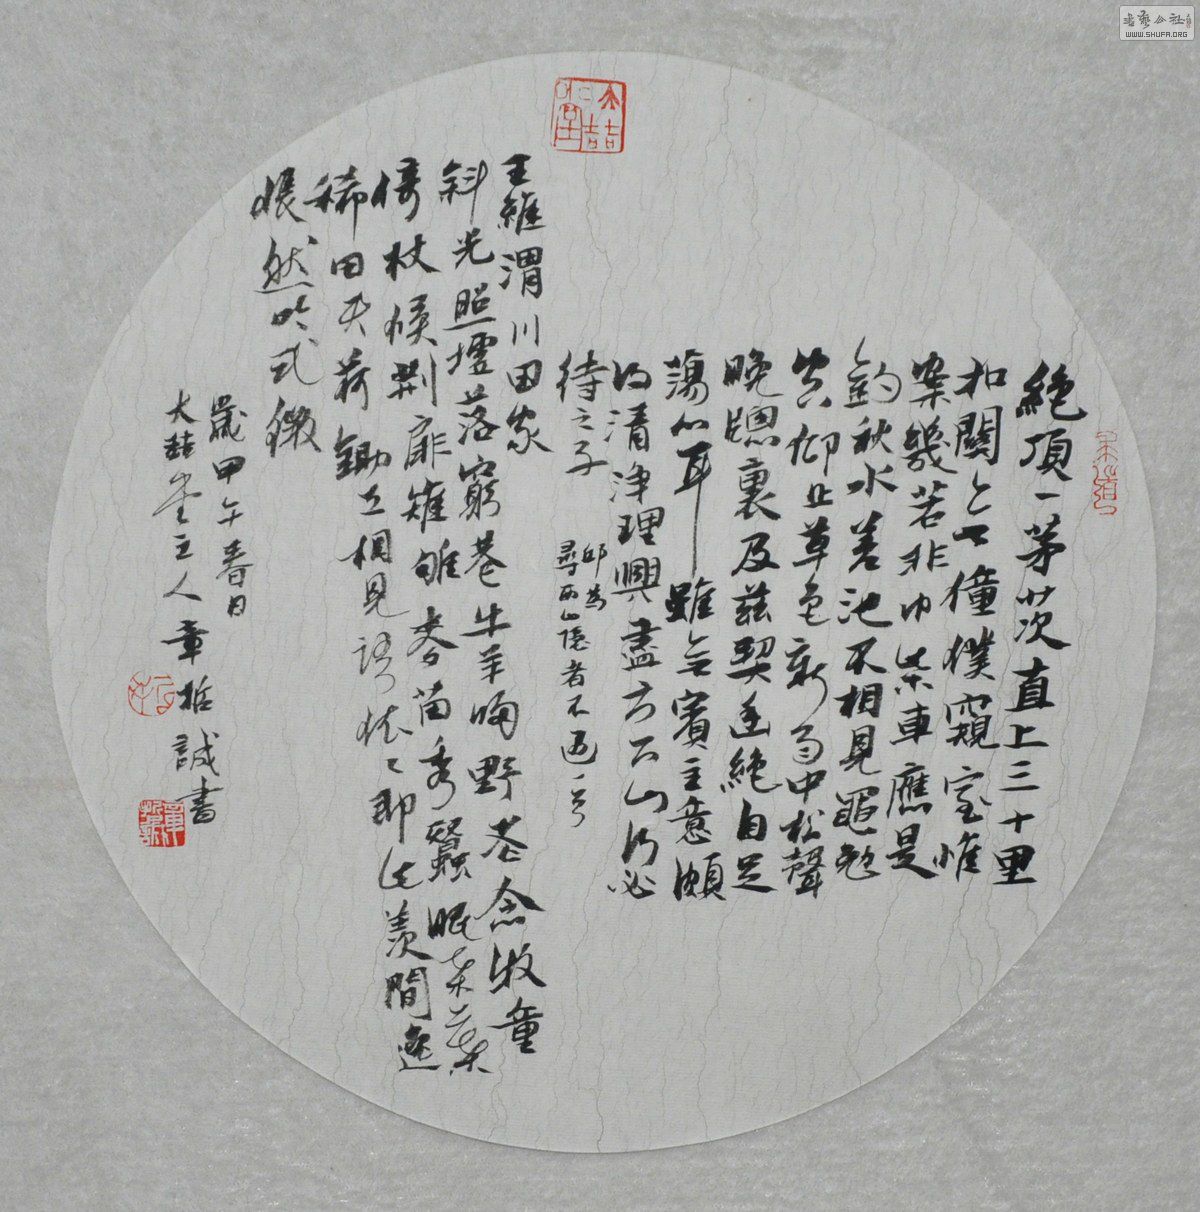 絕頂一茅茨直上三十里
扣關無僮僕窺室惟
案幾若非巾柴車應是
釣秋水差池不相見黽勉
空仰止草色新雨中松聲
晚牕裏及茲契幽絕自足
蕩心耳雖無賓主意頗
得清淨理興盡方下山何必
待之子
邱為
尋西山隱者不遇一首
王維渭川田家
斜光照墟落窮巷牛羊歸野老念牧童
倚杖候荊扉雉雊麥苗秀蠶眠桑葉
稀田夫荷鋤立相見語依〻即此羨閒逸
悵然吟式微
歲甲午春日
大喆堂主人章哲誠書
書藝公社
WWW.SHUFA.ORG